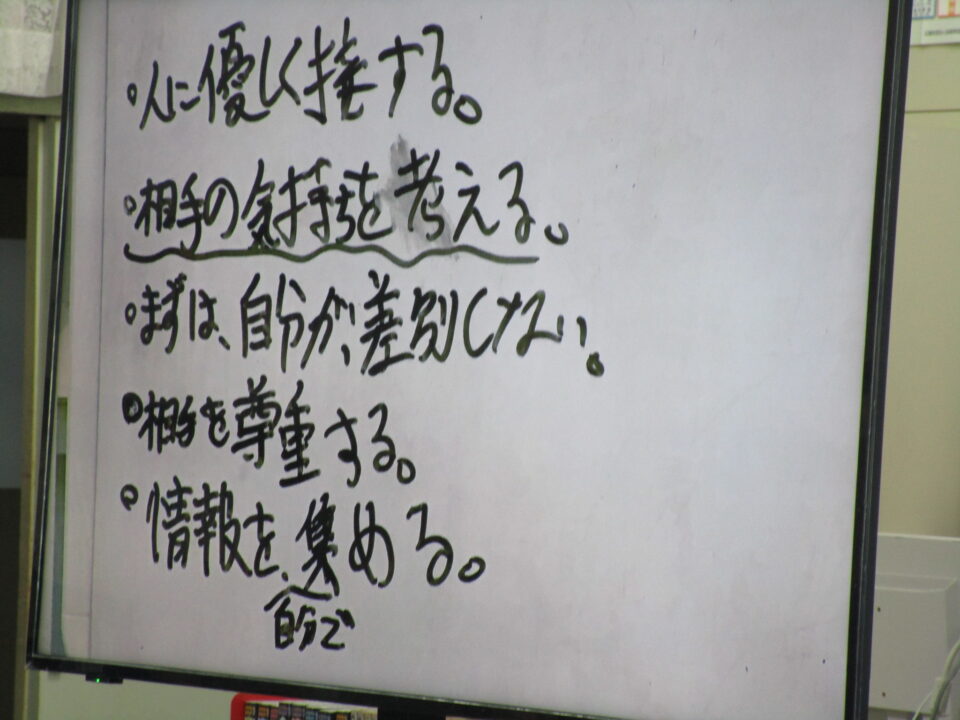 ・人に優しく接する。
・相手の気持ちを考える。
・まずは、自分が、差別しない。
・相手を尊重する。
・情報を、集める。
自分で